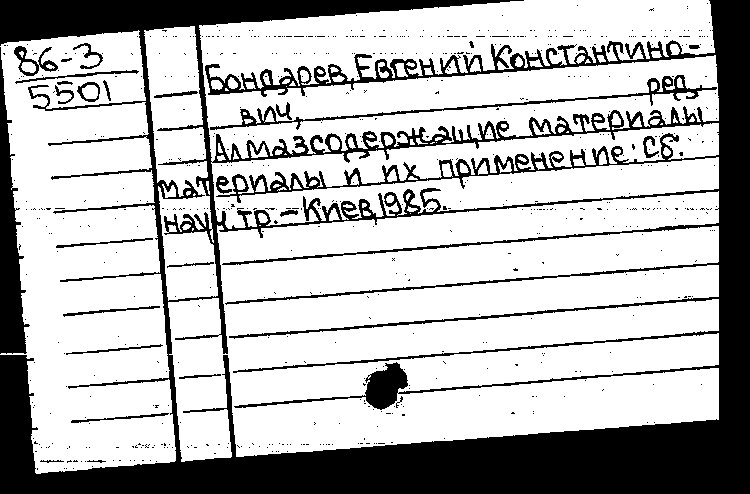 86-3
5501
Бондарев, Евгений Константино-
вич, ред.
Алмазсодержащие материалы
материалы и их применение: Сб.
науч. тр. - Киев, 1985.